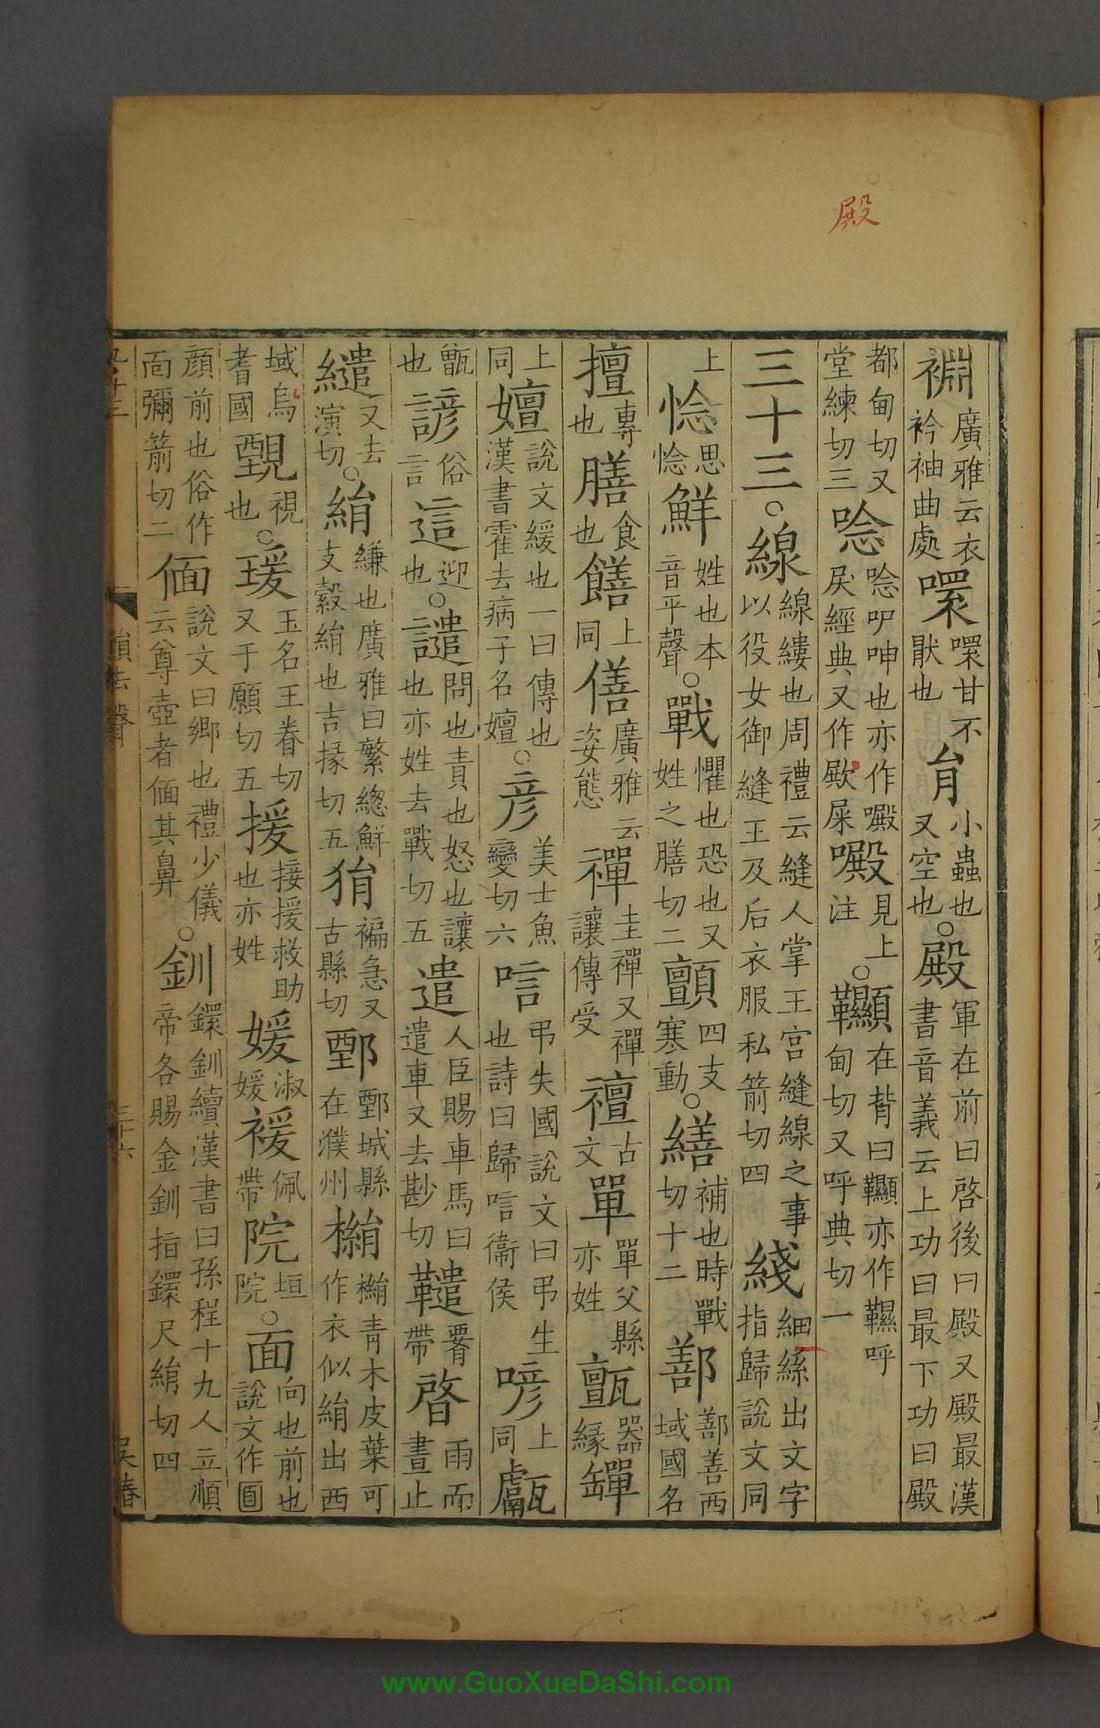 殿
䘰廣雅云衣衿袖曲處㗕㗕甘不猒也肙小蟲也又空也○殿軍在前曰啓後曰殿又殿最漢書音義云上功曰最下功曰殿
都甸切又堂練切三唸唸吚呻也亦作㕧屎經典又作殿屎㕧見上注○韅在背曰韅亦作䪗呼甸切又呼典切一
三十三○線線縷也周禮云縫人掌王宮縫線之事以役女御縫王及后衣服私箭切四綫細絲出文字指歸說文同
上惗思惗鮮姓也本音平聲○戰懼也恐也又姓之膳切二顫四支寒動○繕補也時戰切十二鄯鄯善西域國名
擅專也膳食也饍上同僐廣雅云姿態禪圭禪又禪讓傳受䄠古文單單父縣亦姓𤮜器緣繟
上同嬗說文緩也一曰傳也漢書霍去病子名嬗○彥美士魚變切六唁弔失國說文曰弔生也詩曰歸唁衞侯喭上同甗
甑也諺俗言這迎也○譴問也責也怒也讓也亦姓去戰切五遣人臣賜車馬曰遣車又去尠切䪈䙅帶啓雨而晝止
繾又去演切○絹縑也廣雅曰繁總鮮支縠絹也吉掾切五狷褊急又古縣切鄄鄄城縣在濮州㯞㯞青木皮葉可作衣似絹出西
域烏耆國覫視也○瑗玉名王眷切又于願切五援接援救助也亦姓媛淑媛褑佩帶院垣院○面向也前也說文作圎
顔前也俗作靣彌箭切二偭說文曰鄉也禮少儀云尊壺者偭其鼻○釧鐶釧續漢書曰孫程十九人立順帝各賜金釧指鐶尺絹切四
三十六
吴椿
www.GuoXueDaShi.com